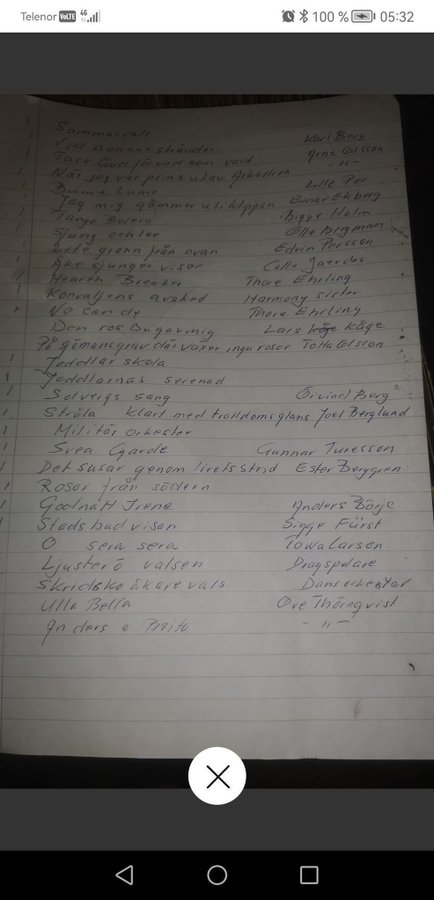 Telenor VoLTE 4G 100 % 05:32
Sommarvals Karl Berg
Vid Donaus stränder Arne Olsson
Tack Gud för ved som vart -"-
När jag var prins utav Arkadien Lille Per
Lume Einar Ekberg
Jag mig gömmer uti klippan Bigge Holm
Tango Bolero Olle Bergman
Sjung och le Edvin Persson
grann från ovan
Åke sjunger visor
Hearth Breaker Thore Ehrling
Konvaljens avsked Harmony sister
No can do Thore Ehrling
Den ros Du gav mig Lars Köge
På sömansgrav där växer inga rosor Totta Olsson
Jeddlar skola
Joddlainas serenad
Solveigs sång Öivind Berg
Stråla klart med trolldomsglans Joel Berglund
Militär orkester
Svea Garde Gunnar Turesson
Det susar genom livets strid Ester Berggren
Rosor från södern
Godnatt Irene Anders Börje
Stadsbudvisan Sigge Fürst
O sera sera Towa Carson
Ljusterö valsen Dragspelare
Skridskoåkarevals Dansorkester
Ulla Bella Ove Thörnqvist
Anders o Britta -"-